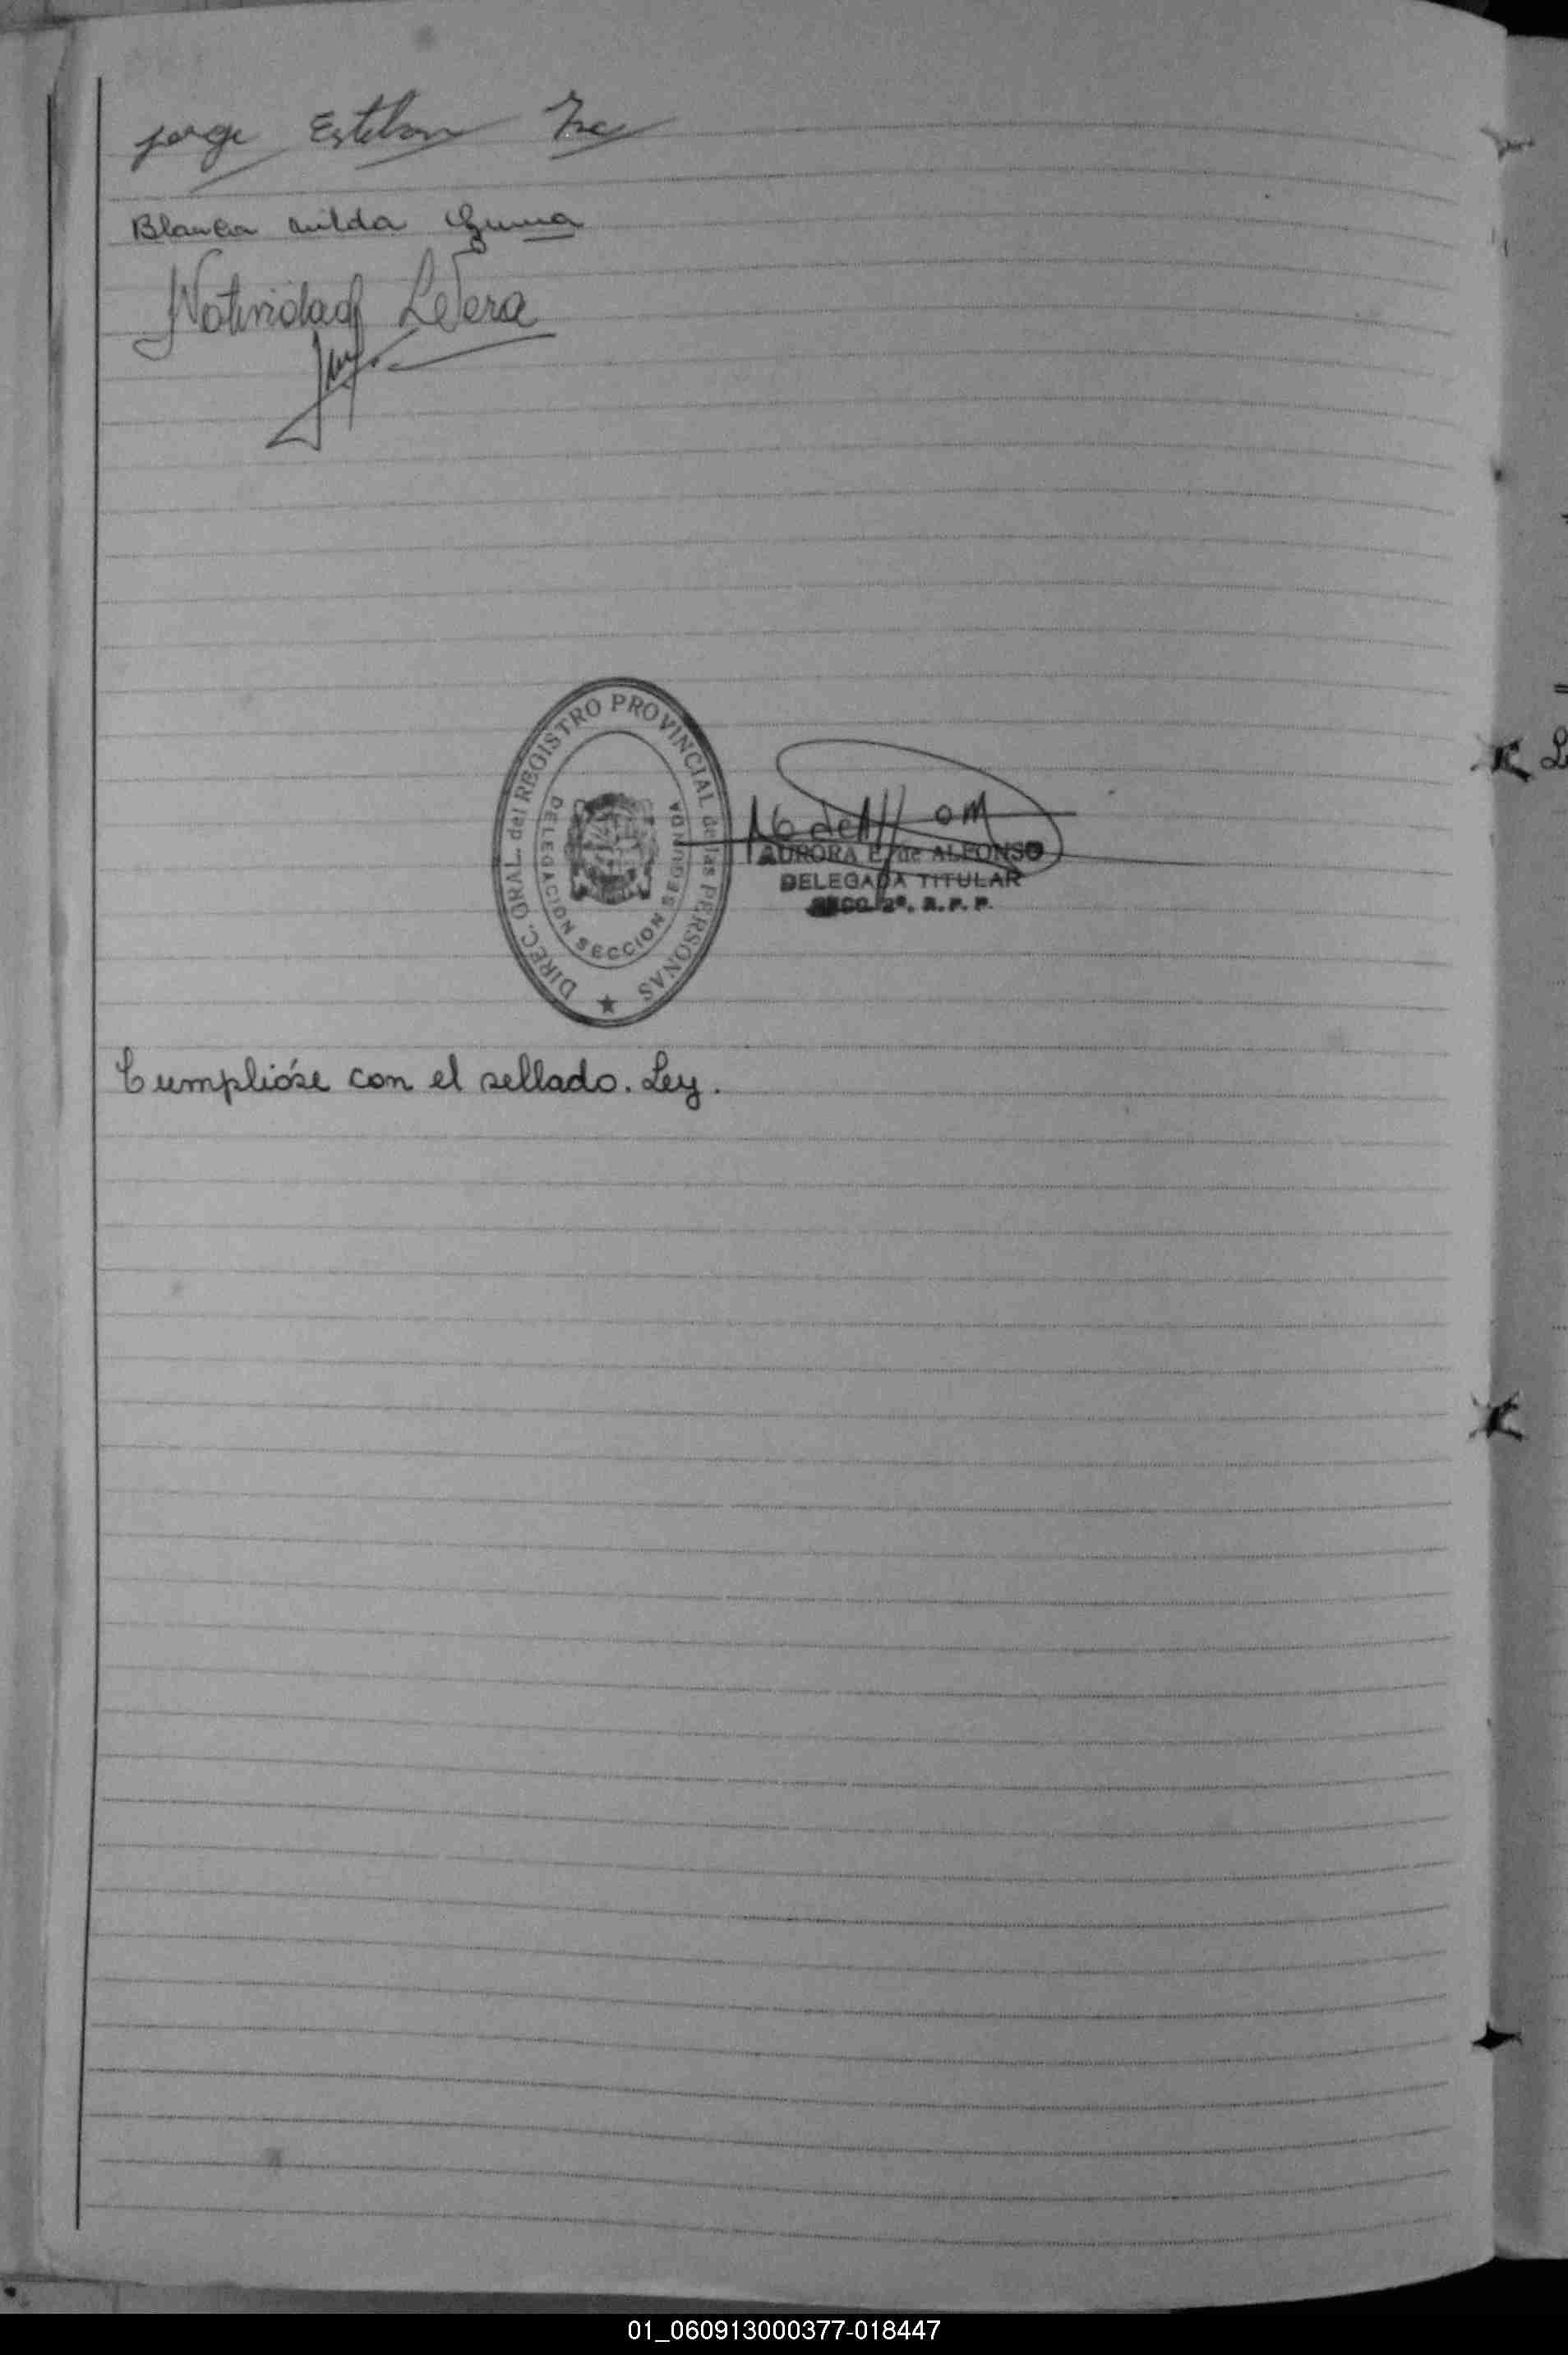 Jorge Esteban
Blanca nilda
Natividad
DIREC. GRAL. del REGISTRO PROVINCIAL de las PERSONAS
DELEGACION SECCION SEGUNDA
AURORA E. de ALFONSO
DELEGADA TITULAR
SECC. 2ª. R. P. P.
Cumplióse con el sellado. Ley.
01_060913000377-018447